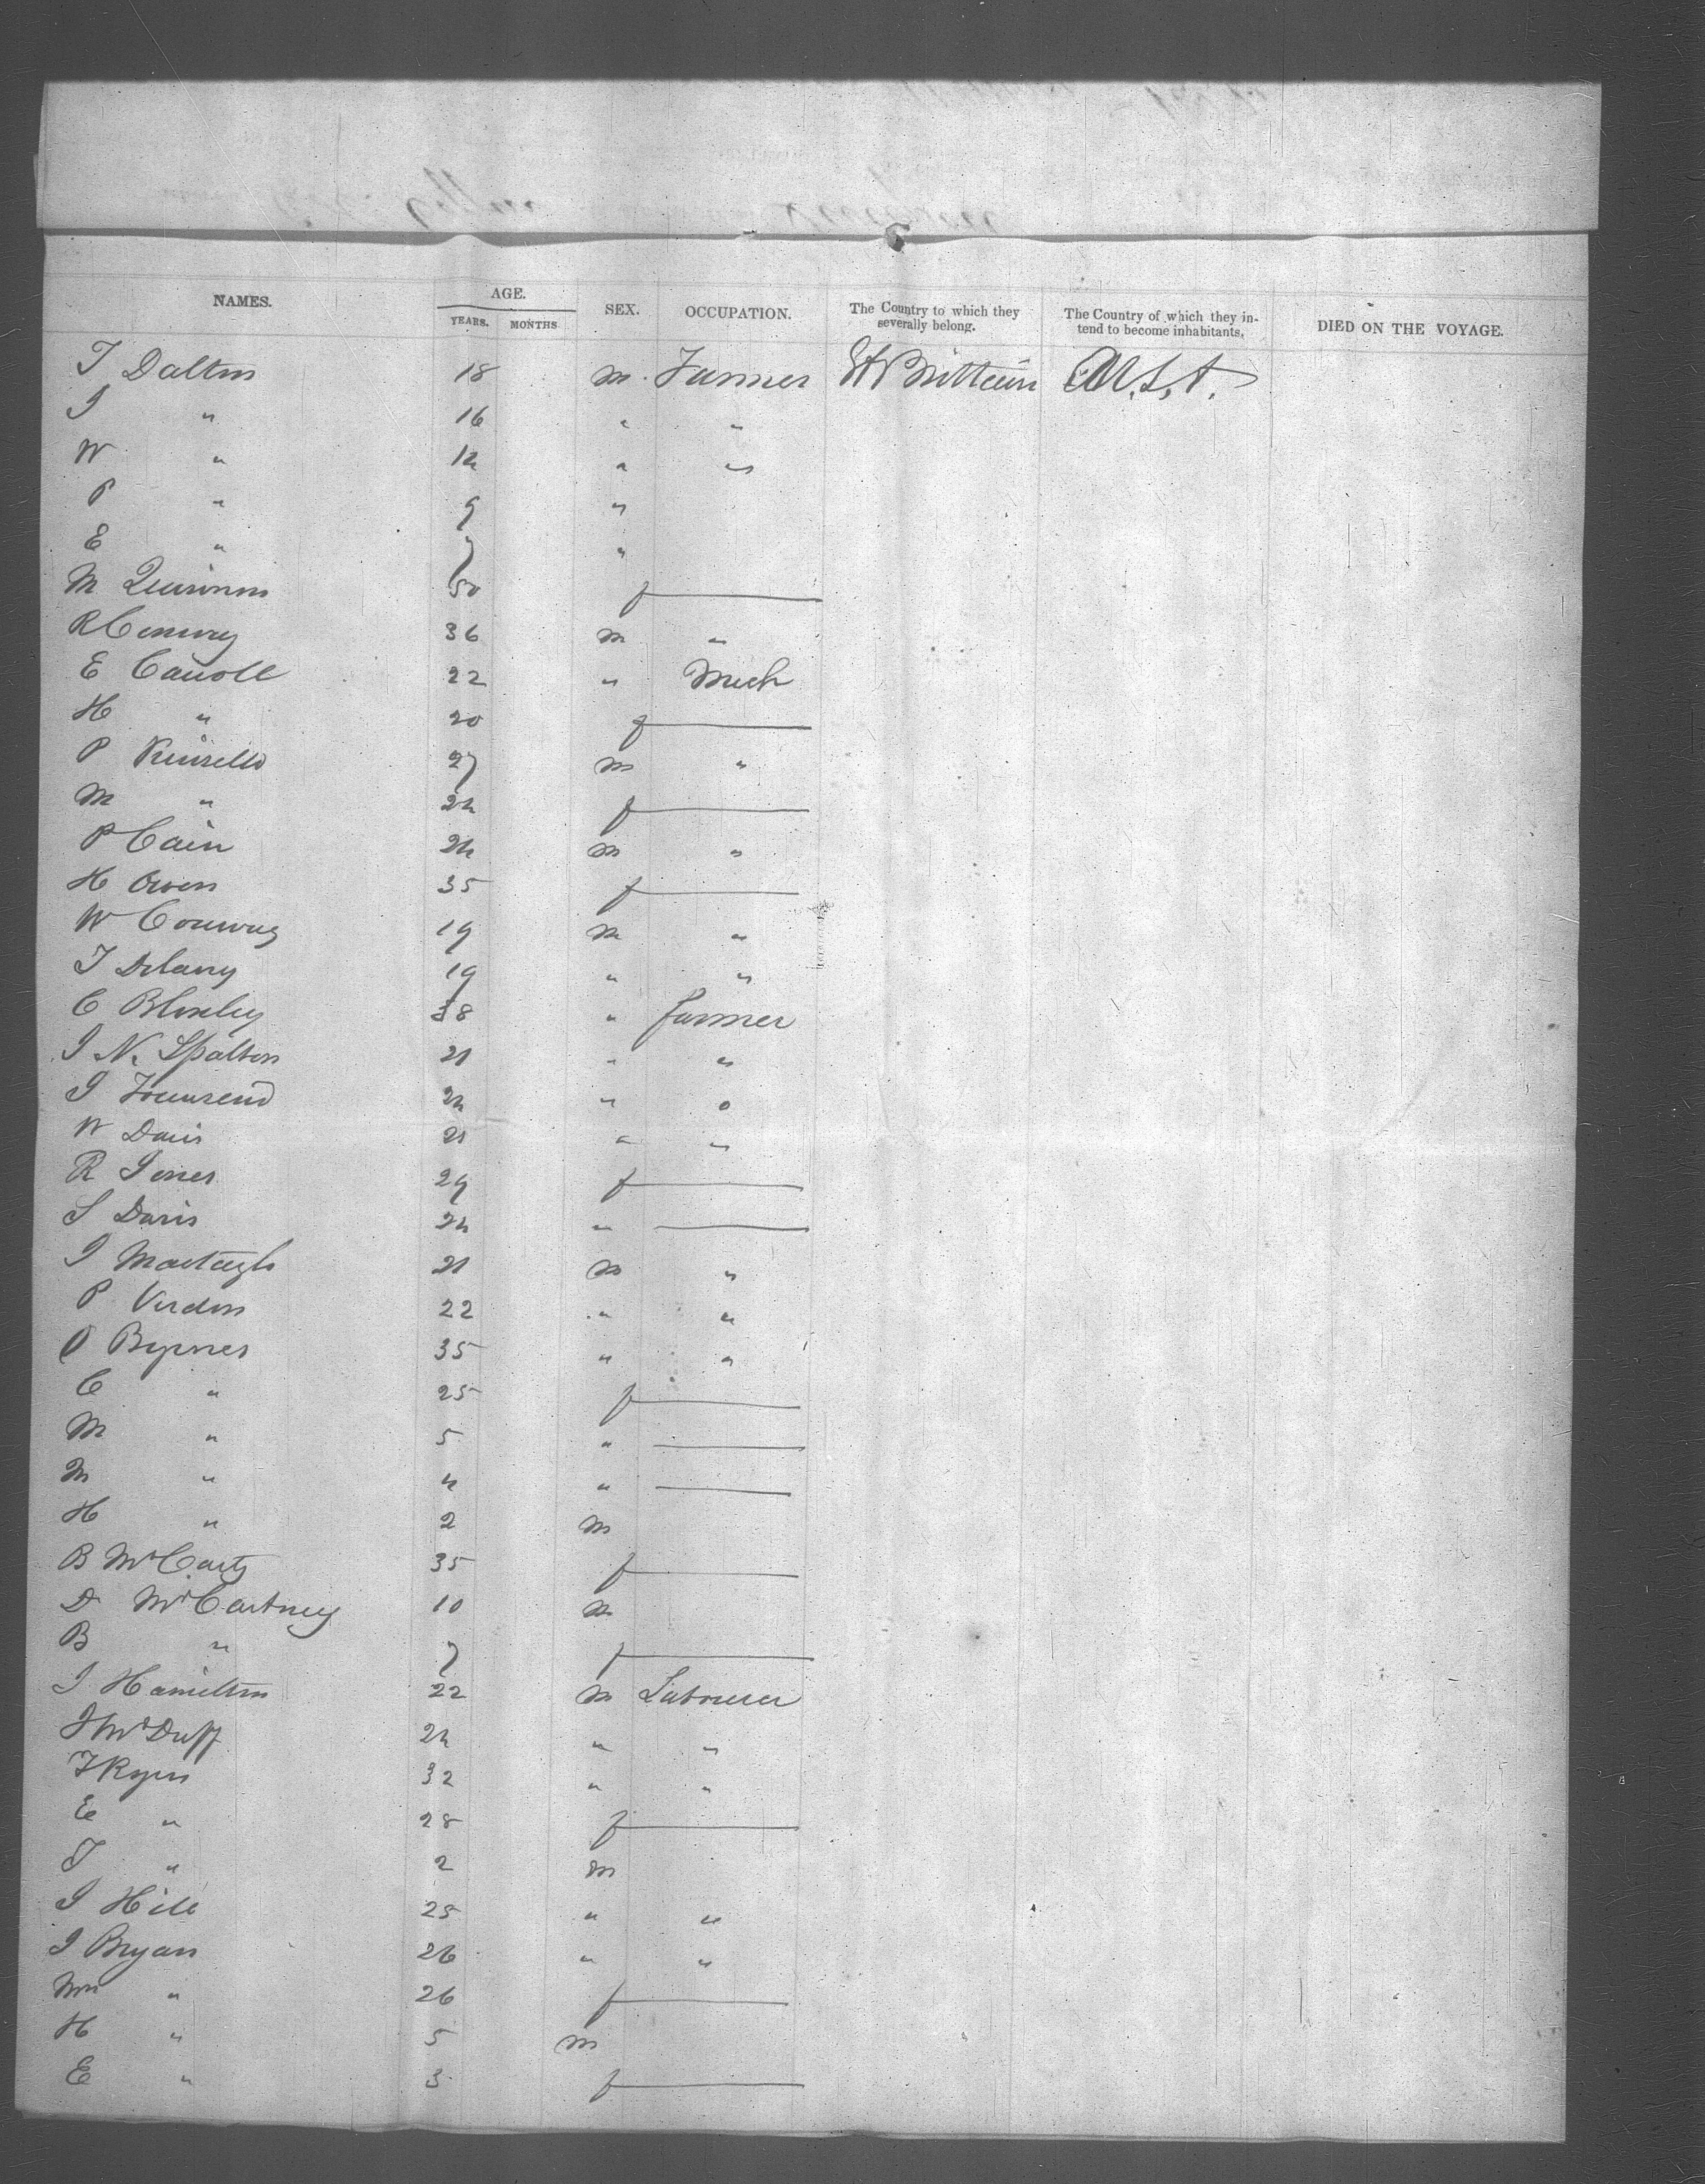 NAMES. AGE. SEX. OCCUPATION. The Country to which they severally belong. The Country of which they intend to become inhabitants. DIED ON THE VOYAGE.
YEARS. MONTHS
T Dalton 18 m. Farmer Gt Brittain U.S.A.
J " 16 " "
W " 12 " "
P " 9 "
E " 7 "
M 50 f
R Conway 36 m "
E Carroll 22 " Mech
H " 20 f
P Kinsella 27 m "
M " 24 f
P Cain 24 m "
H Owen 35 f
W Conway 19 m "
T Delany 19 " "
C 38 " farmer
J N. Spalton 21 " "
J Townsend 24 " "
W Davis 21 " "
R Jones 29 f
S Davis 24 "
J Murtagh 21 m "
P Verdon 22 " "
O Byrnes 35 " "
C " 25 f
M " 5 "
M " 4 "
H " 2 m
B McCarty 35 f
D McCartney 10 m
B " 7 f
J Hamilton 22 m Labourer
J McDuff 24 " "
T Ryan 32 " "
E " 28 f
T " 2 m
J Hill 25 " "
J Bryan 26 " "
Mrs " 26 f
H " 5 m
E " 3 f